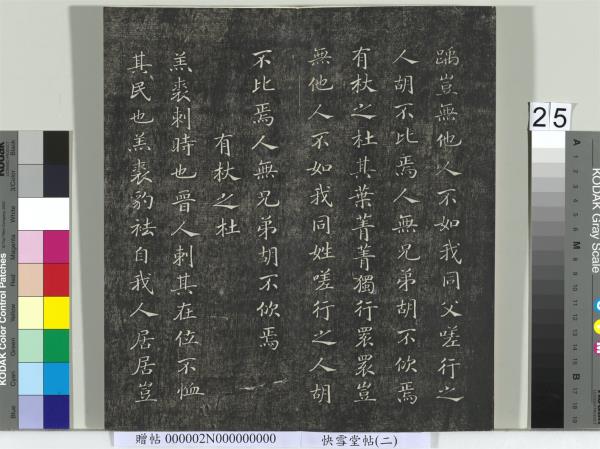 踽豈無他人不如我同父嗟行之
人胡不比焉人無兄弟胡不佽焉
有杕之杜其葉菁菁獨行睘睘豈
無他人不如我同姓嗟行之人胡
不比焉人無兄弟胡不佽焉
有杕之杜
羔裘刺時也晉人刺其在位不恤
其民也羔裘豹袪自我人居居豈
25
贈帖 000002N000000000 快雪堂帖(二)
KODAK Color Control Patches
Blue Cyan Green Yellow Red Magenta White 3/Color Black
KODAK Gray Scale
A 1 2 3 4 5 6 M 8 9 10 11 12 13 14 15 B 17 18 19